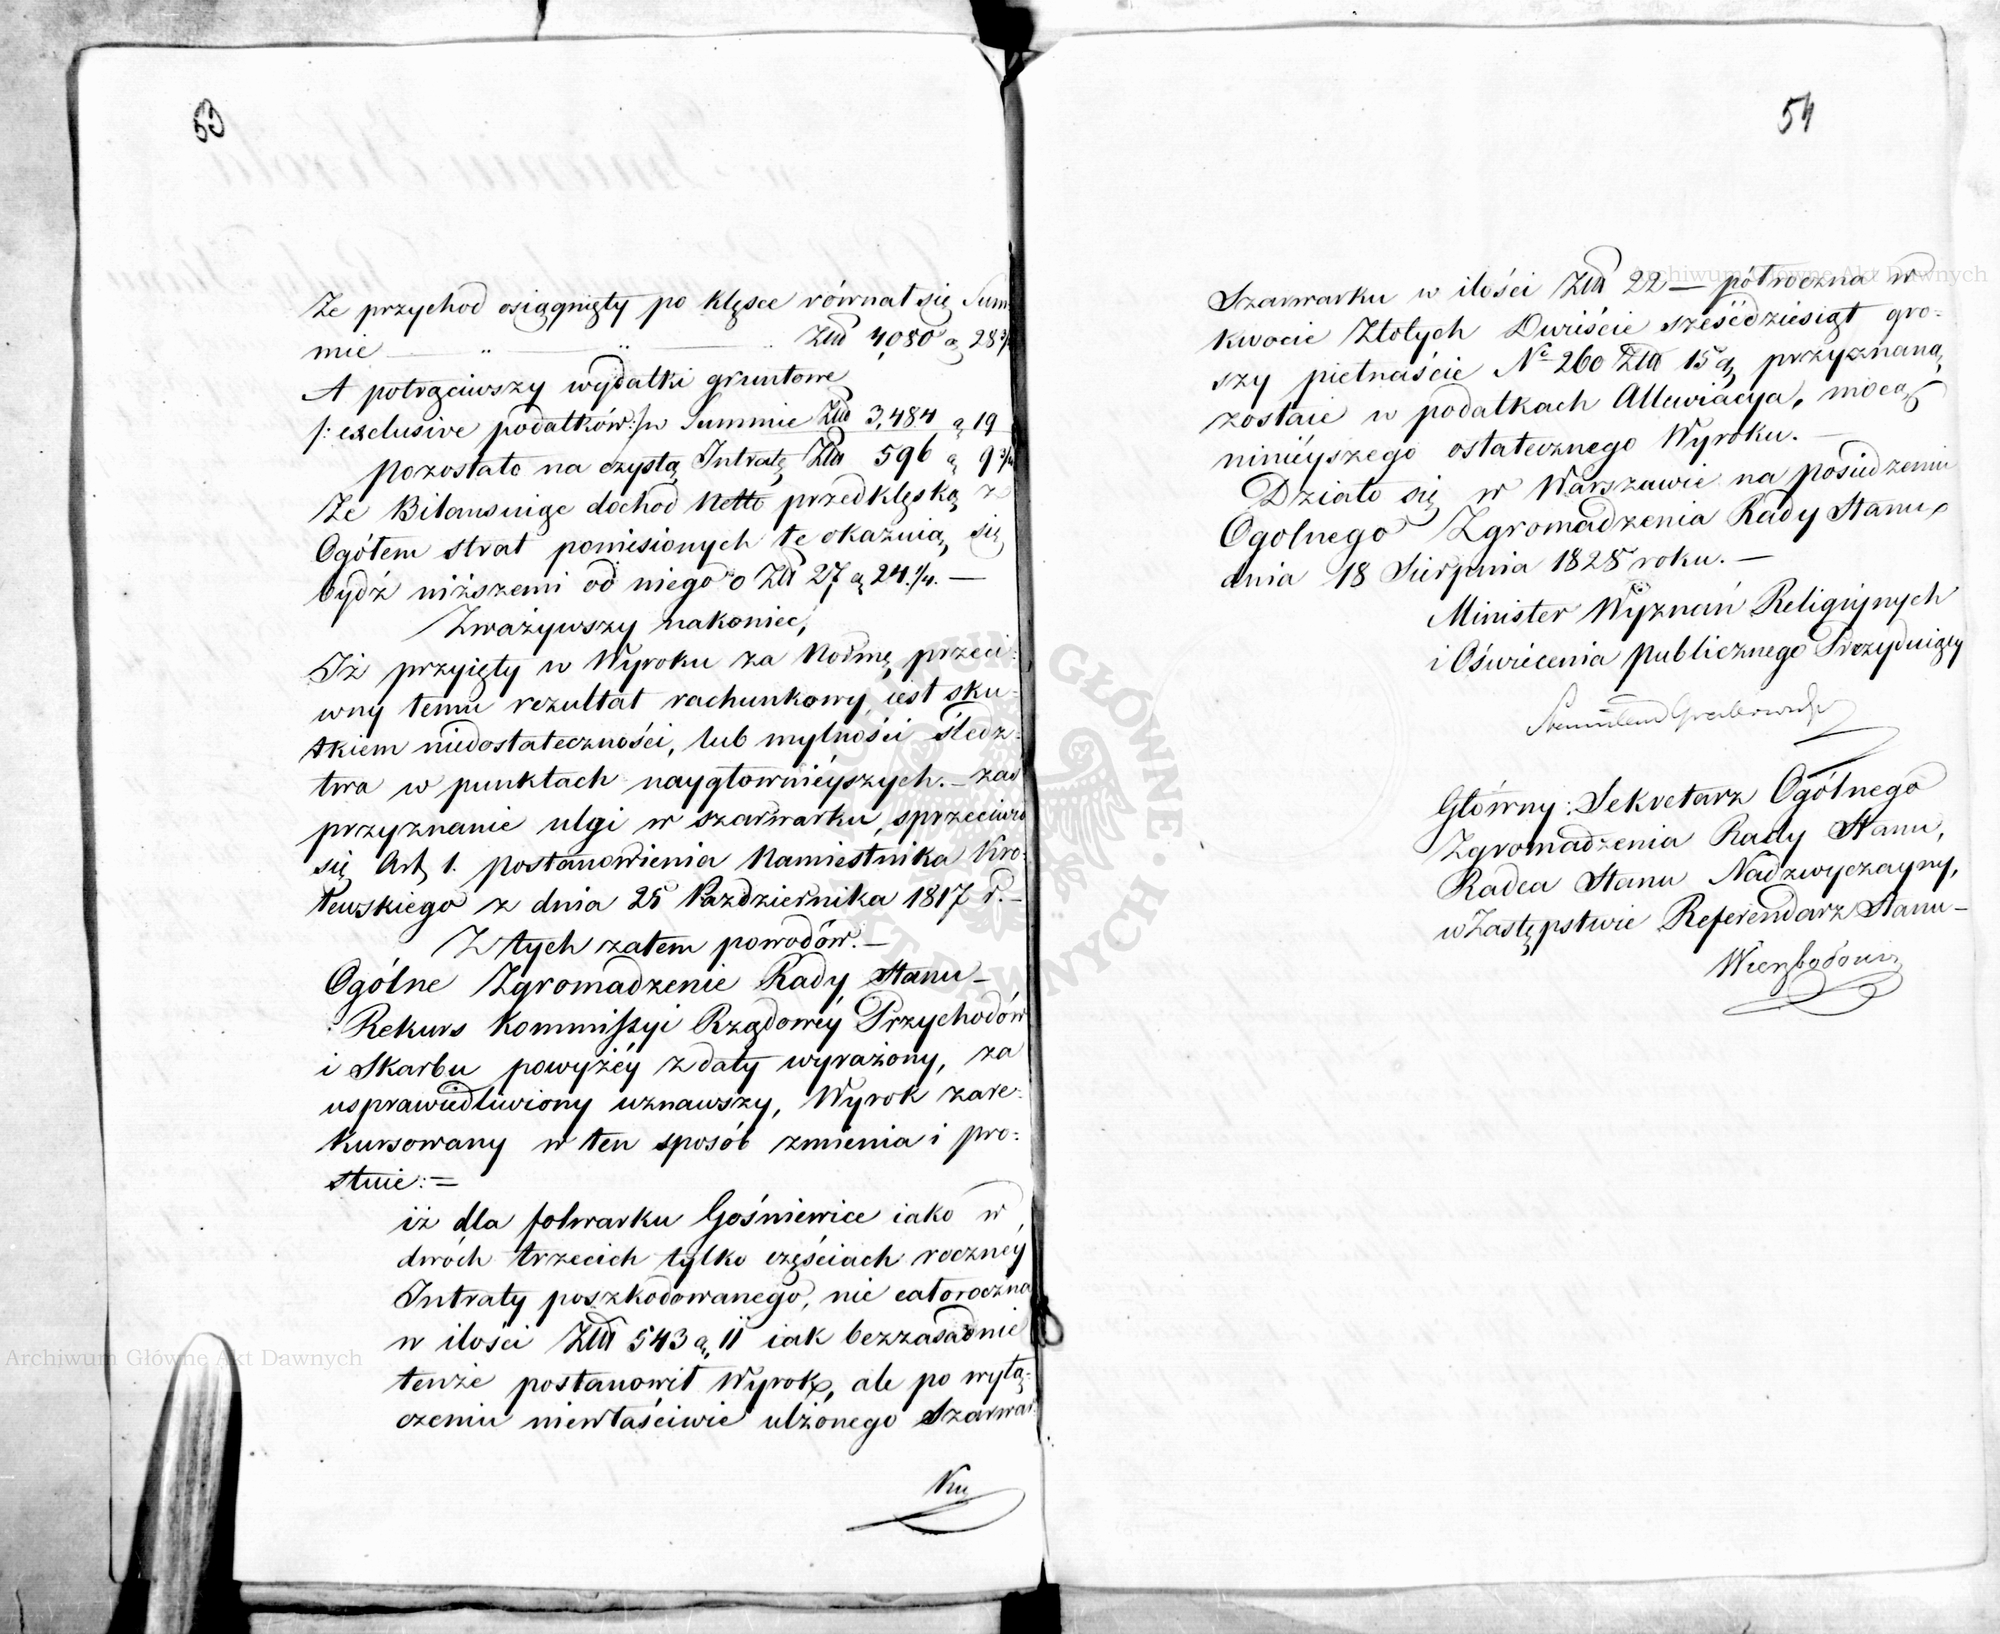 53
Że przychod osiągnięty po klęsce równał się Sum-
mie Złd 4,080 g 28 3/4
A potrąciwszy wydatki gruntowe
/: exclusive podatków :/ w Summie Złd 3,484 g 19
pozostało na czystą Intratę Złd 596 g 9 3/4
Że Bilansuiąc dochod Netto przed klęską z
Ogółem strat poniesionych te okazuią się
bydź niższemi od niego o Złd 27 g 24 1/4. —
Zważywszy nakoniec,
Iż przyięty w Wyroku za Normę przeci-
wny temu rezultat rachunkowy, iest sku-
tkiem niedostateczności, lub mylności Śledz-
twa w punktach naygłownieyszych. — zaś
przyznanie ulgi w szarwarku, sprzeciwia
się Art. 1. postanowienia Namiestnika Kró-
lewskiego z dnia 25 Października 1817 r. —
Z tych zatem powodów. —
Ogólne Zgromadzenie Rady Stanu —
Rekurs Kommissyi Rządowéy Przychodów
i Skarbu powyżéy z daty wyrażony, za
usprawiedliwiony uznawszy, Wyrok zare-
kursowany w ten sposób zmienia i pro-
stuie: =
iż dla folwarku Gośniewice iako w
dwóch trzecich tylko częściach roczney
Intraty poszkodowanego, nie całoroczna
w ilości Złd 543 g 11 iak bezzasadnie
tenże postanowił Wyrok, ale po wyłą-
czeniu niewłaściwie ulżonego Szarwar-
Ku
54
Szarwarku w ilości Złd 22 — półroczna w
kwocie Złotych Dwieście sześćdziesiąt gro-
szy pietnaście No 260 Złd 15 g przyznaną
zostaie w podatkach Allewiacya, mocą
ninieyszego ostatecznego Wyroku. —
Działo się w Warszawie na posiedzeniu
Ogolnego Zgromadzenia Rady Stanu
dnia 18 Sierpnia 1828 roku. —
Minister Wyznań Religiynych
i Oświecenia publicznego Prezyduiący
Stanisław Grabowski
Główny Sekretarz Ogólnego
Zgromadzenia Rady Stanu,
Radca Stanu Nadzwyczayny,
w Zastępstwie Referendarz Stanu —
Archiwum Główne Akt Dawnych
Archiwum Główne Akt Dawnych